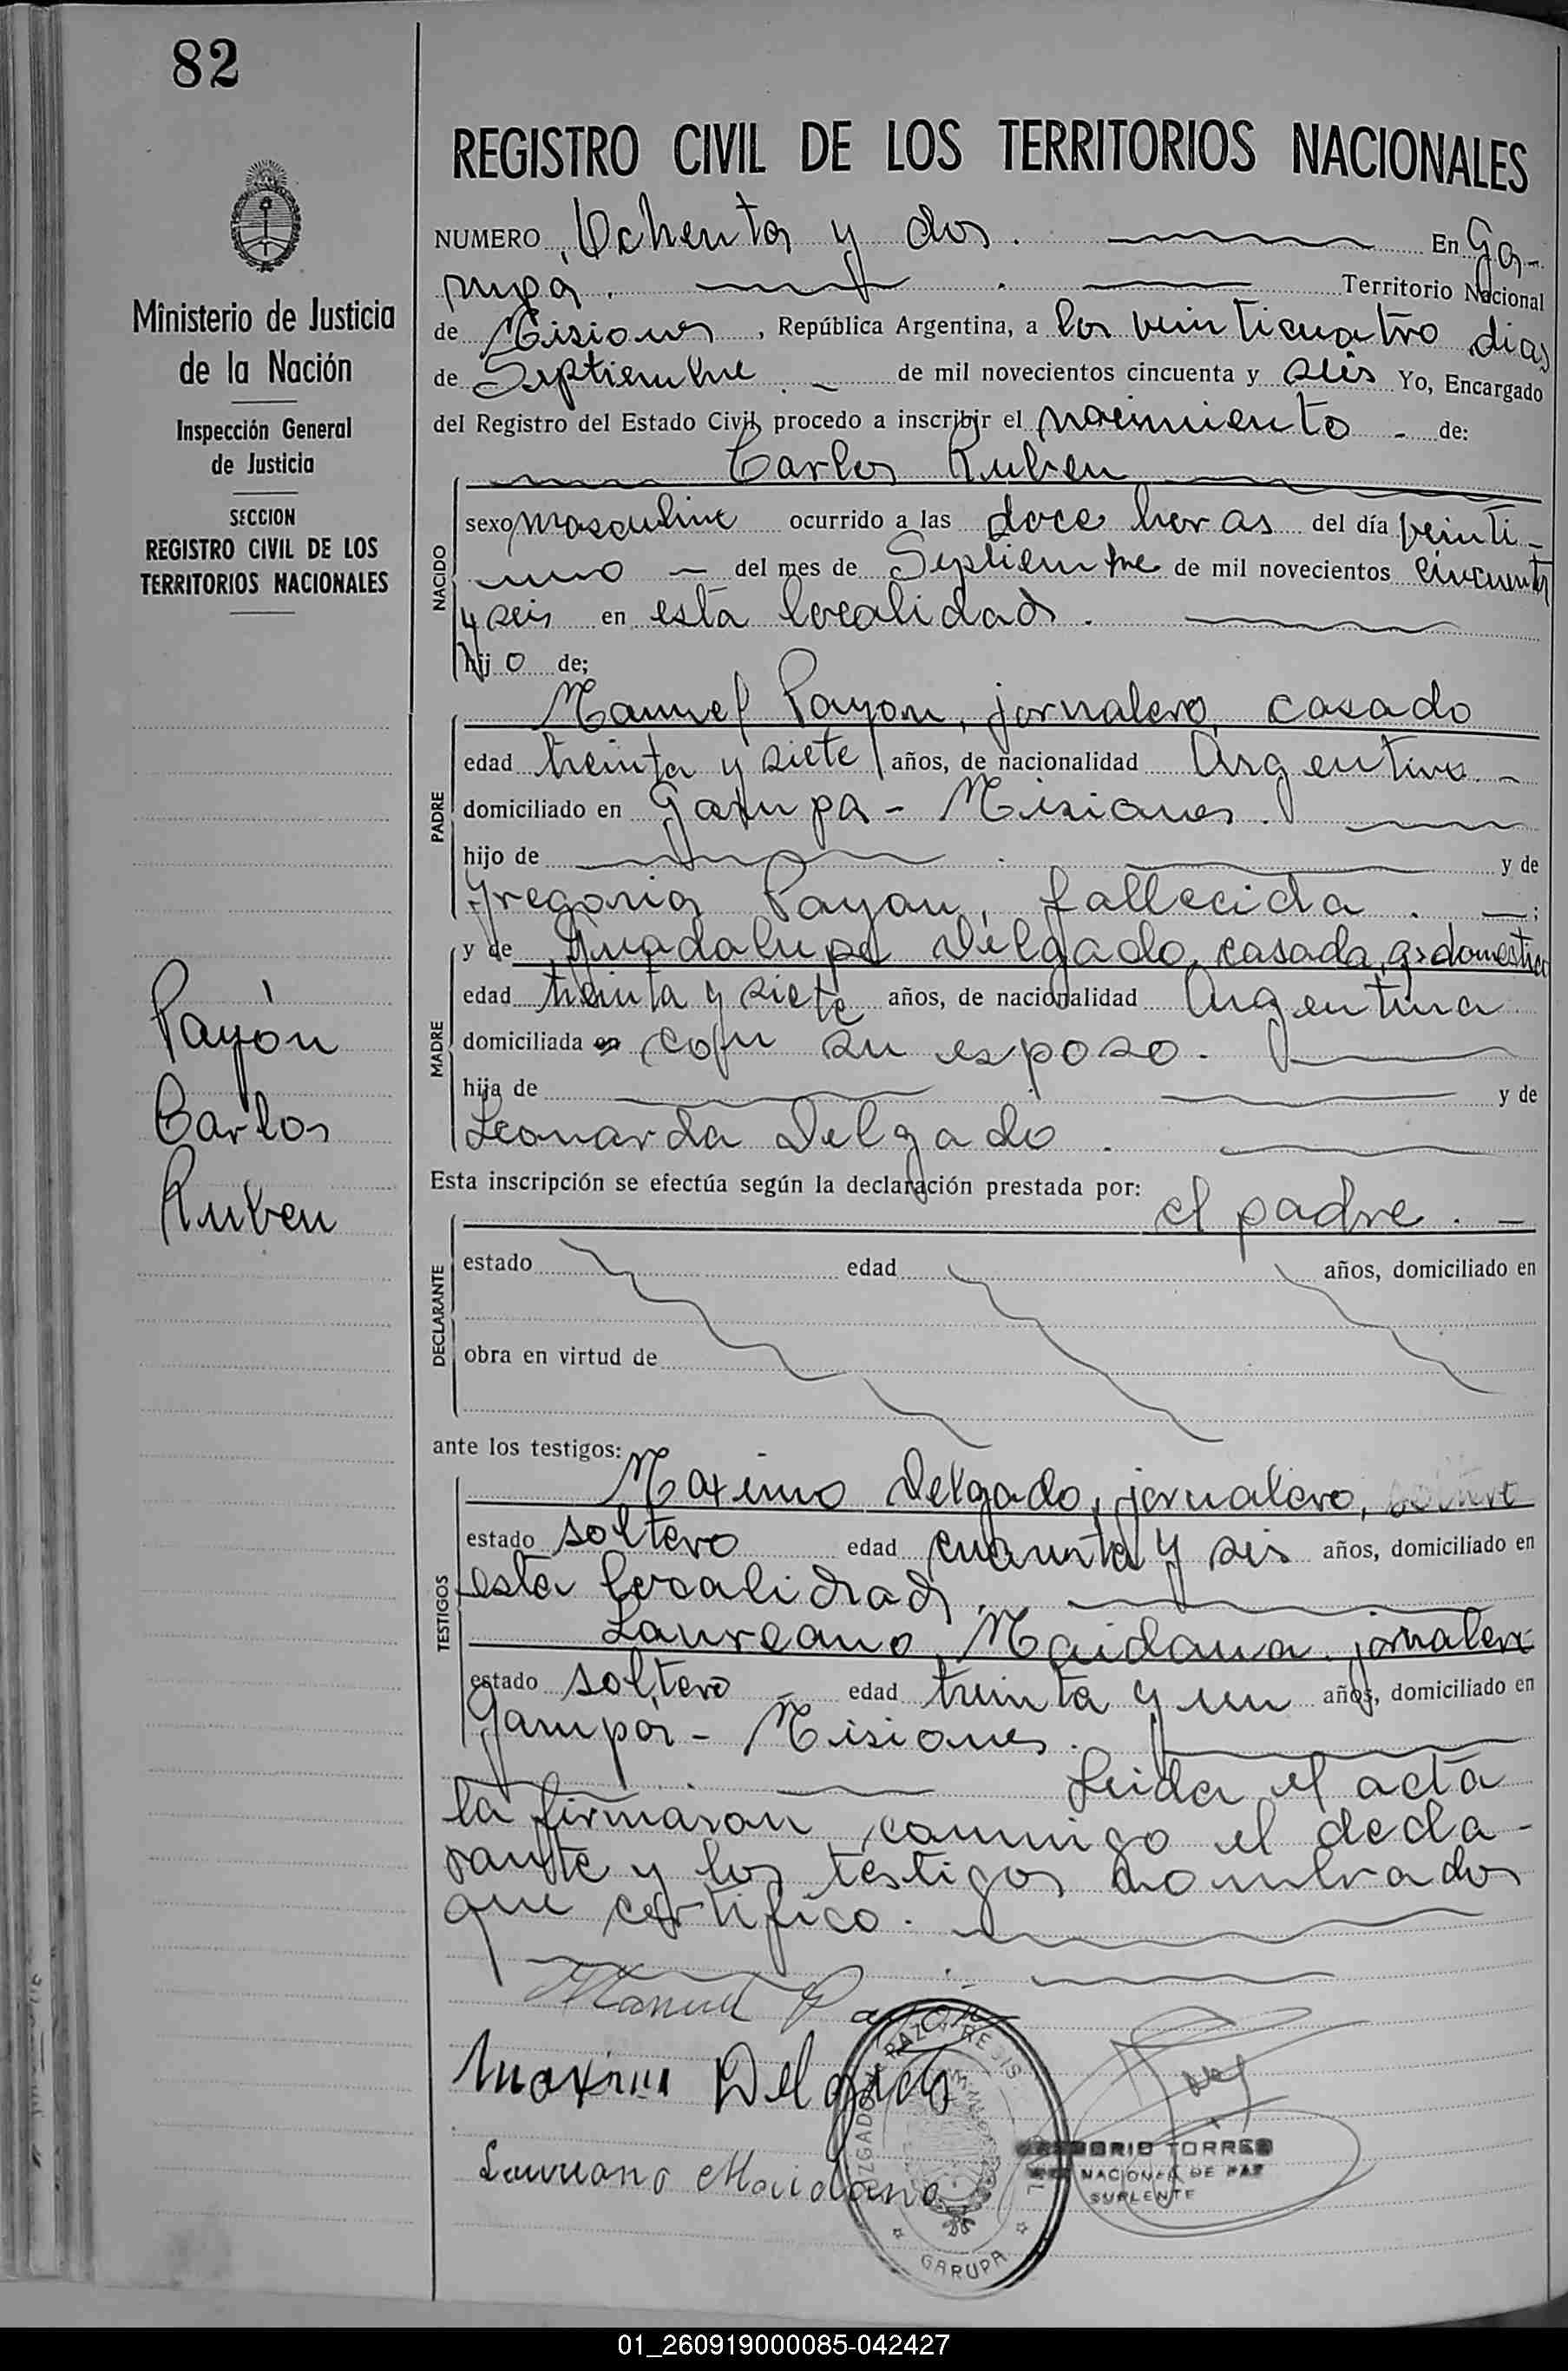 82
REGISTRO CIVIL DE LOS TERRITORIOS NACIONALES
Ministerio de Justicia
de la Nación
Inspección General
de Justicia
SECCION
REGISTRO CIVIL DE LOS
TERRITORIOS NACIONALES
Payón
Carlos
Ruben
NUMERO Ochenta y dos. En Ga-
rupa. Territorio Nacional
de Misiones, República Argentina, a los veinticuatro dias
de Septiembre de mil novecientos cincuenta y seis Yo, Encargado
del Registro del Estado Civil, procedo a inscribir el nacimiento - de:
Carlos Ruben
NACIDO
sexo masculino ocurrido a las doce horas del día veinti-
uno - del mes de Septiembre de mil novecientos cincuenta
y seis en esta localidad.
hijo de;
Manuel Payon, jornalero, casado
PADRE
edad treinta y siete años, de nacionalidad Argentino. -
domiciliado en Garupa - Misiones.
hijo de y de
Gregoria Payon, fallecida. - ;
y de Guadalupe Delgado, casada, q. domestica
MADRE
edad treinta y siete años, de nacionalidad Argentina
domiciliada en con su esposo.
hija de y de
Leonarda Delgado.
Esta inscripción se efectúa según la declaración prestada por: el padre. -
DECLARANTE
estado edad años, domiciliado en
obra en virtud de
ante los testigos:
Maximo Delgado, jornalero,
TESTIGOS
estado soltero edad cuarenta y seis años, domiciliado en
esta localidad.
Laureano Maidana. jornalero
estado soltero - edad treinta y un años, domiciliado en
Garupa - Misiones.
Leida el acta
la firmaron conmigo el decla-
rante y los testigos nombrados
que certifico.
Manuel Payon
Maximo Delgado
Laureano Maidana
JUZGADO DE PAZ Y REGIS
GARUPA
GREGORIO TORRES
NACIONAL DE PAZ
SUPLENTE
01_260919000085-042427